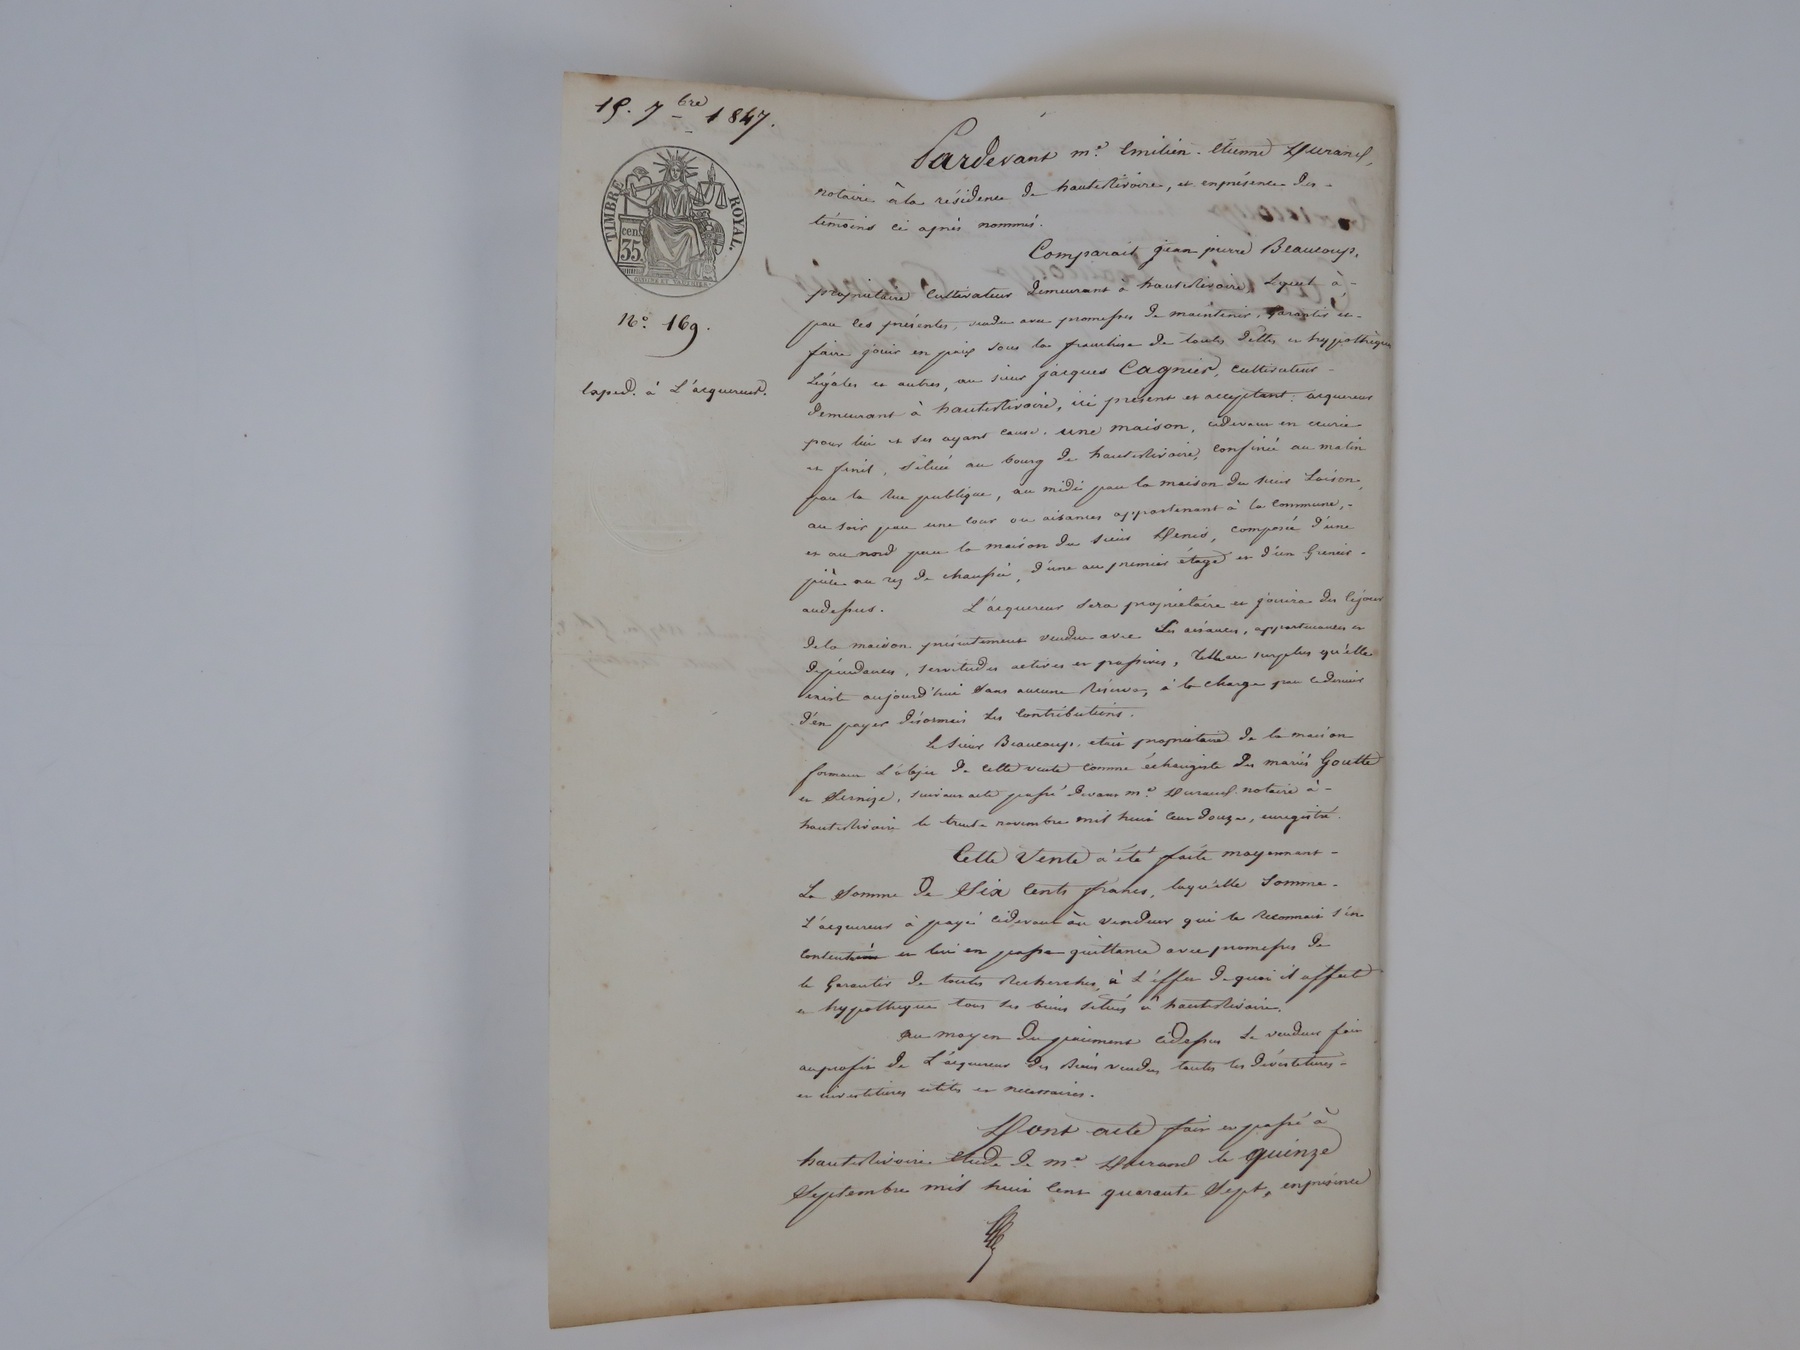 15. 7bre 1847.
TIMBRE ROYAL.
cen. 35
No. 169.
exped. à L'acquereur.
Pardevant me. Emilien Etienne Durand,
notaire à la résidence de hauterivoire, et enprésence des
témoins ci après nommés.
Comparait jean pierre Beaucoup,
propriétaire cultivateur demeurant à hauterivoire Lequel à
par ces présentes, vendu avec promesses de maintenir, garantir et
faire jouir en paix sous la franchise de toutes dettes et hypothèques
Légales et autres, au sieur jacques Cagnier, cultivateur
demeurant à hauterivoire, ici présent et acceptant. acquereur
pour lui et ses ayant cause. une maison, cidevant en écurie
et fenil, située au bourg de hauterivoire, confinée au matin
par la rue publique, au midi par la maison du sieur Loison,
au soir par une cour ou aisances appartenant à la commune,
et au nord par la maison du sieur Denis, composée d'une
pièce au rez de chaussée, d'une au premier étage et d'un Grenier
audessus. L'acquereur sera propriétaire et jouira dès cejour
dela maison présentement vendue avec Ses aisances, appartenances et
dépendances, servitudes actives et passives, telle au surplus qu'elle
existe aujourd'hui sans aucune Réserve, à la charge par cedernier
d'en payer désormais les contributions.
Le sieur Beaucoup, etait propriétaire de la maison
formant L'objet de cette vente comme échangiste des mariés Goutte
et suivant acte passé devant me. Durand notaire à
hauterivoire le trente novembre mil huit cent douze, enregistré.
Cette Vente à été faite moyennant
La Somme de Six Cents francs, laquelle Somme
L'acquereur à payé cidevant au vendeur qui le Reconnait s'en
contente et lui en passe quittance avec promesses de
le Garantir de toutes Recherches, à L'effet de quoi il affecte
et hypothèque tous ses biens situés à hauterivoire.
au moyen du paiement cidessus Le vendeur fait
auprofit de L'acquereur des Biens vendus toutes les dévestitures
et investitures utiles et necessaires.
Dont acte fait et passé à
hauterivoire étude de me. Durand le quinze
Septembre mil huit cent quarante Sept, enprésence